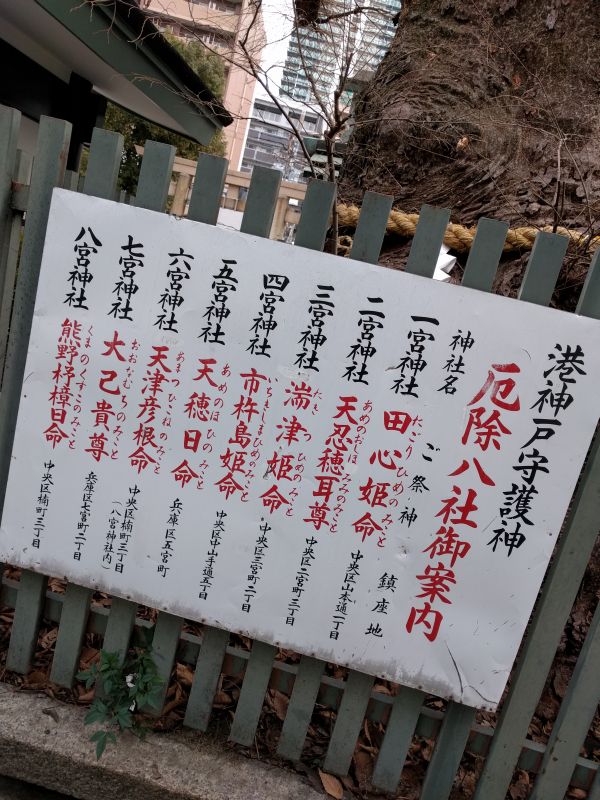 港神戸守護神
厄除八社御案内
神社名 ご祭神 鎮座地
一宮神社 田心姫命 たごりひめのみこと 中央区山本通一丁目
二宮神社 天忍穂耳尊 中央区二宮町三丁目
三宮神社 湍津姫命 中央区三宮町二丁目
四宮神社 市杵島姫命 いちきしまひめのみこと 中央区中山手通五丁目
五宮神社 天穂日命 あめのほひのみこと 兵庫区五宮町
六宮神社 天津彦根命 あまつひこねのみこと 中央区楠町三丁目 (八宮神社内)
七宮神社 大己貴尊 おおなむちのみこと 兵庫区七宮町二丁目
八宮神社 熊野杼樟日命 中央区楠町三丁目